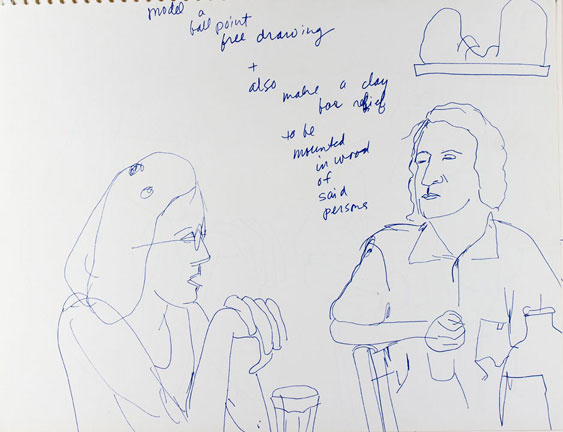 model a
ball point
free drawing
+
also make a clay
bas relief
to be
mounted
in wood
of
said
persons